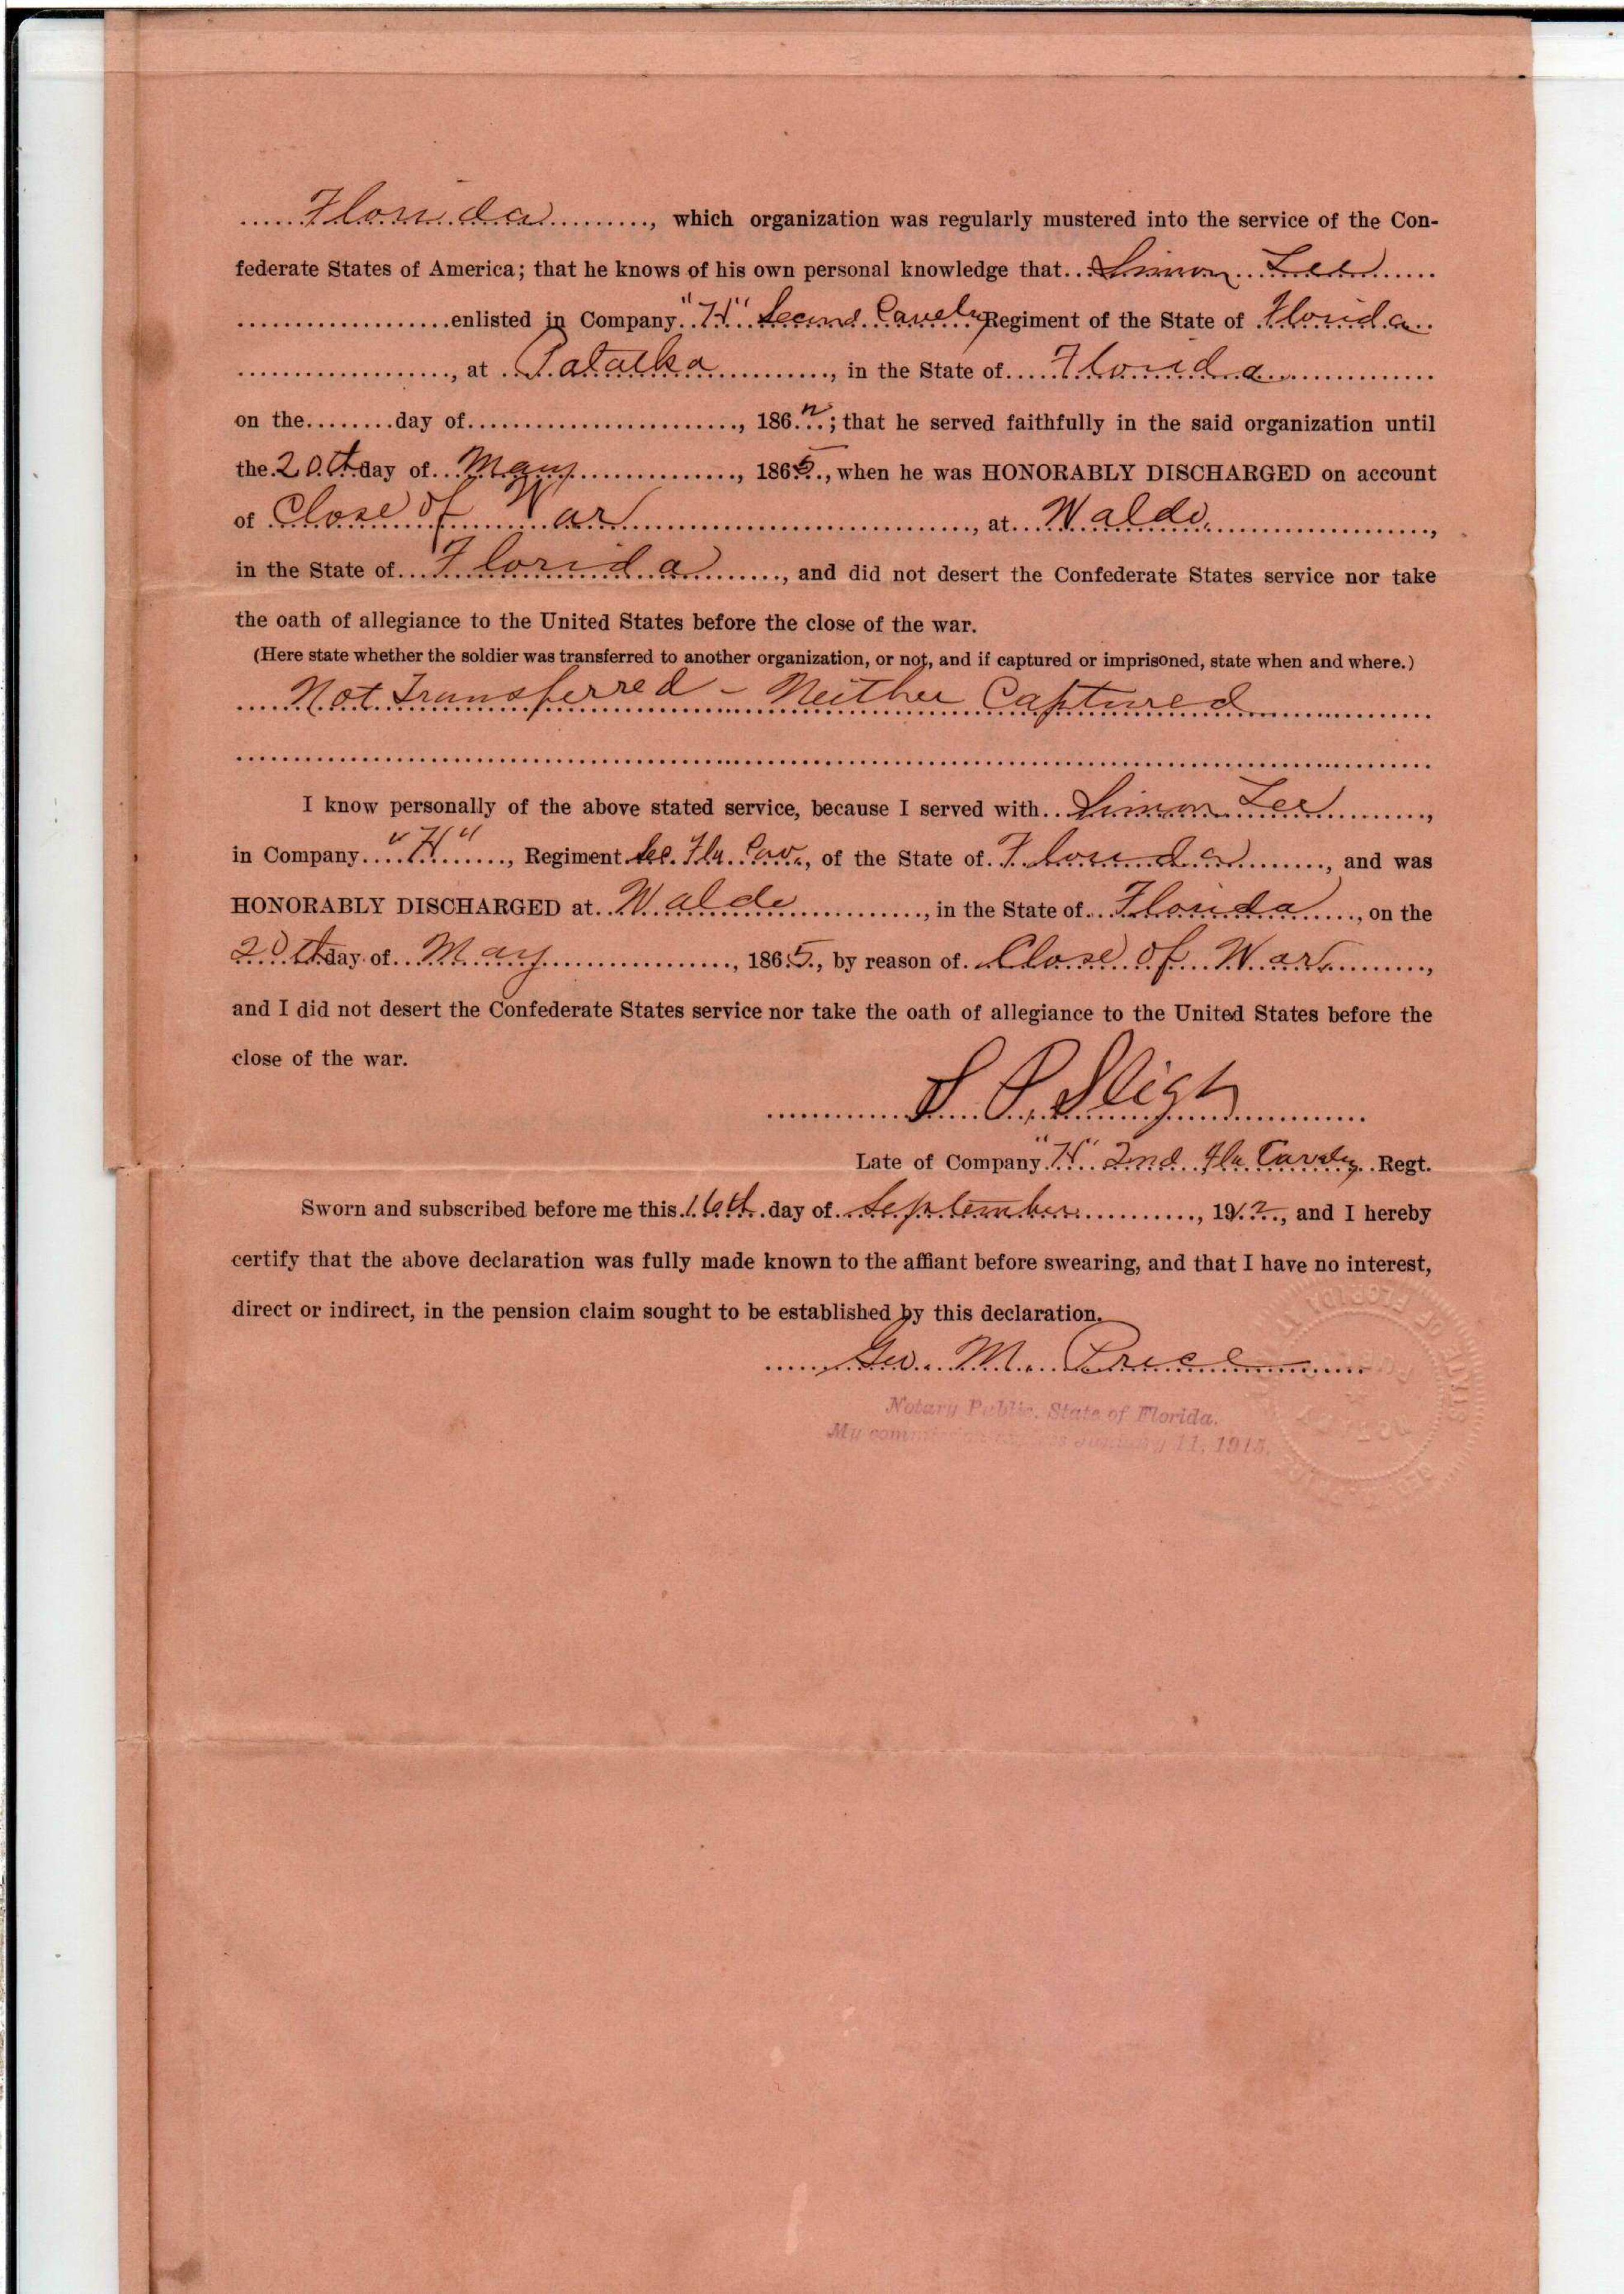 Florida, which organization was regularly mustered into the service of the Con-
federate States of America; that he knows of his own personal knowledge that Simon Lee
enlisted in Company "H" Second Cavelry Regiment of the State of Florida
, at Palatka, in the State of Florida
on the day of , 186 ; that he served faithfully in the said organization until
the 20th day of May, 1865, when he was HONORABLY DISCHARGED on account
of Close of War, at Waldo,
in the State of Florida, and did not desert the Confederate States service nor take
the oath of allegiance to the United States before the close of the war.
(Here state whether the soldier was transferred to another organization, or not, and if captured or imprisoned, state when and where.)
Not Transferred - Neither Captured
I know personally of the above stated service, because I served with Simon Lee,
in Company "H", Regiment Fla. Cav., of the State of Florida, and was
HONORABLY DISCHARGED at Waldo, in the State of Florida, on the
20th day of May, 1865, by reason of Close of War,
and I did not desert the Confederate States service nor take the oath of allegiance to the United States before the
close of the war.
S P Sligh
Late of Company "H" 2nd Fla Cavalry Regt.
Sworn and subscribed before me this 16th day of September, 1912, and I hereby
certify that the above declaration was fully made known to the affiant before swearing, and that I have no interest,
direct or indirect, in the pension claim sought to be established by this declaration.
Geo. M. Price
Notary Public, State of Florida.
My commission expires January 11, 1915.